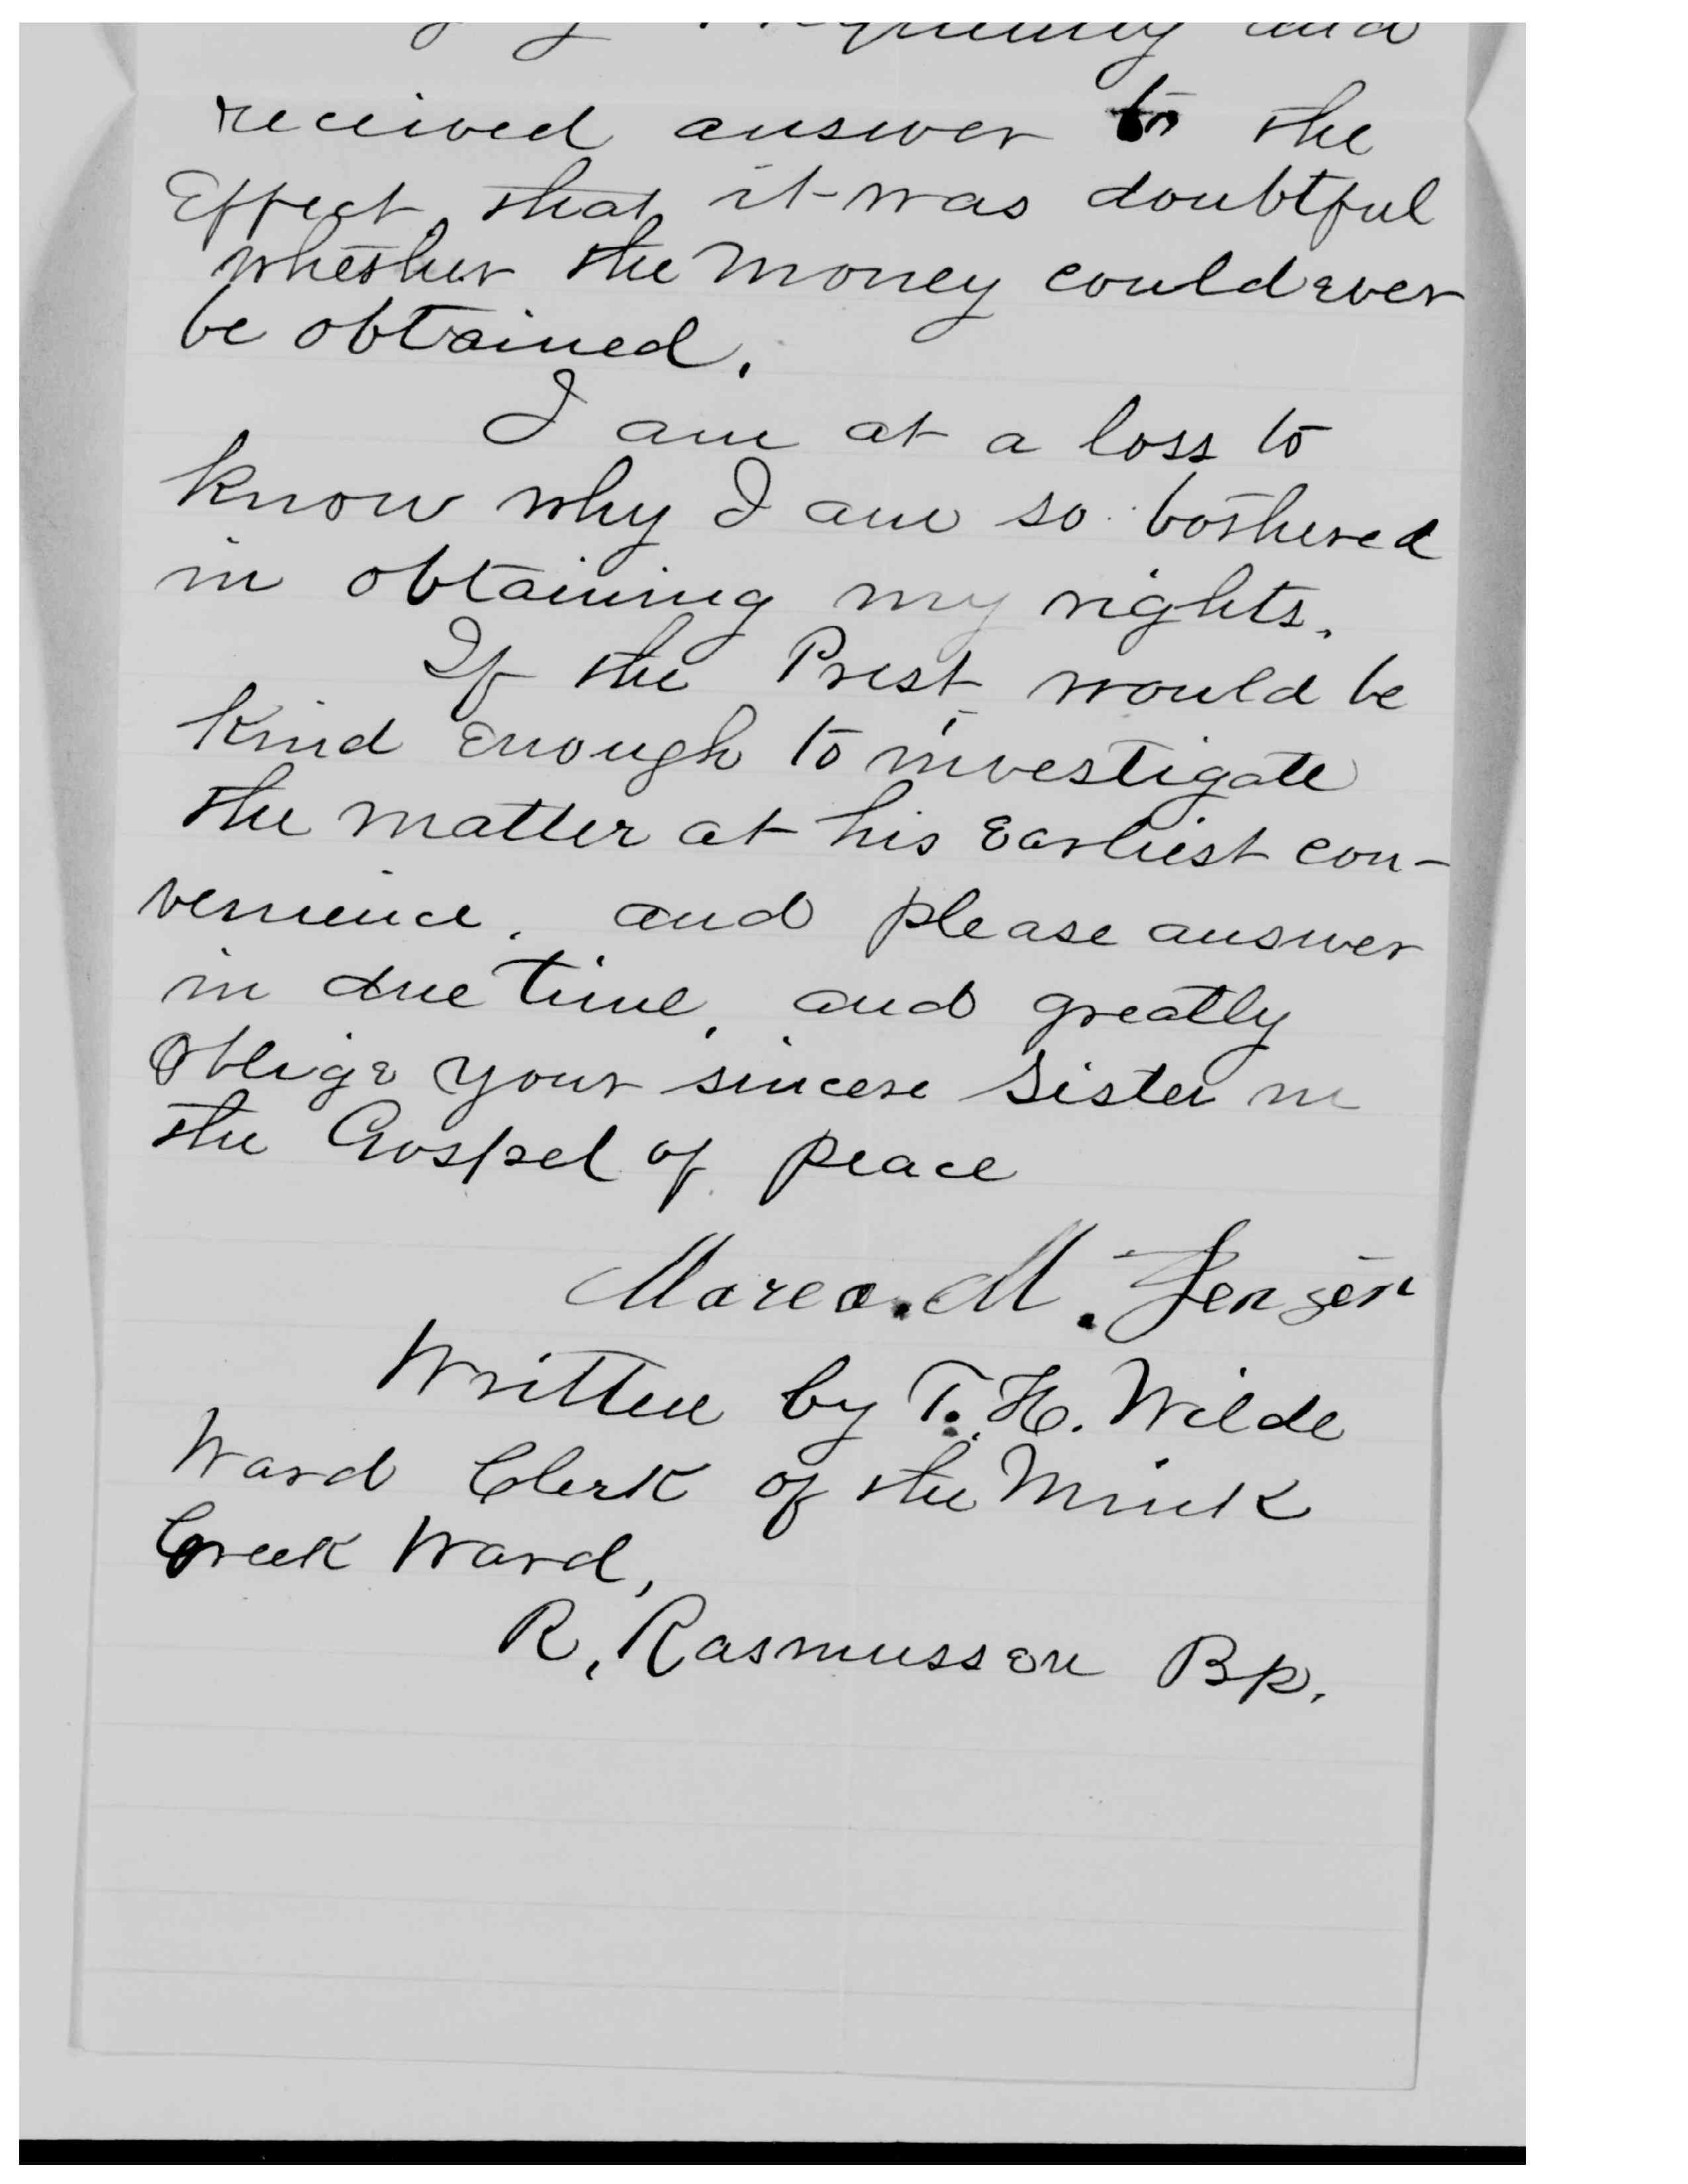 and
received answer to the
Effect, that, it was doubtful
whether the Money could ever
be obtained.
I am at a loss to
know why I am so bothered
in obtaining my rights.
If the Prest would be
kind enough to investigate
the matter at his Earliest con-
venience, and please answer
in due time, and greatly
oblige your sincere Sister in
the Gospel of peace
Marea. M. Jensen
Written by T. H. Wilde
Ward Clerk of the Mink
Creek Ward,
R. Rasmussen Bp.